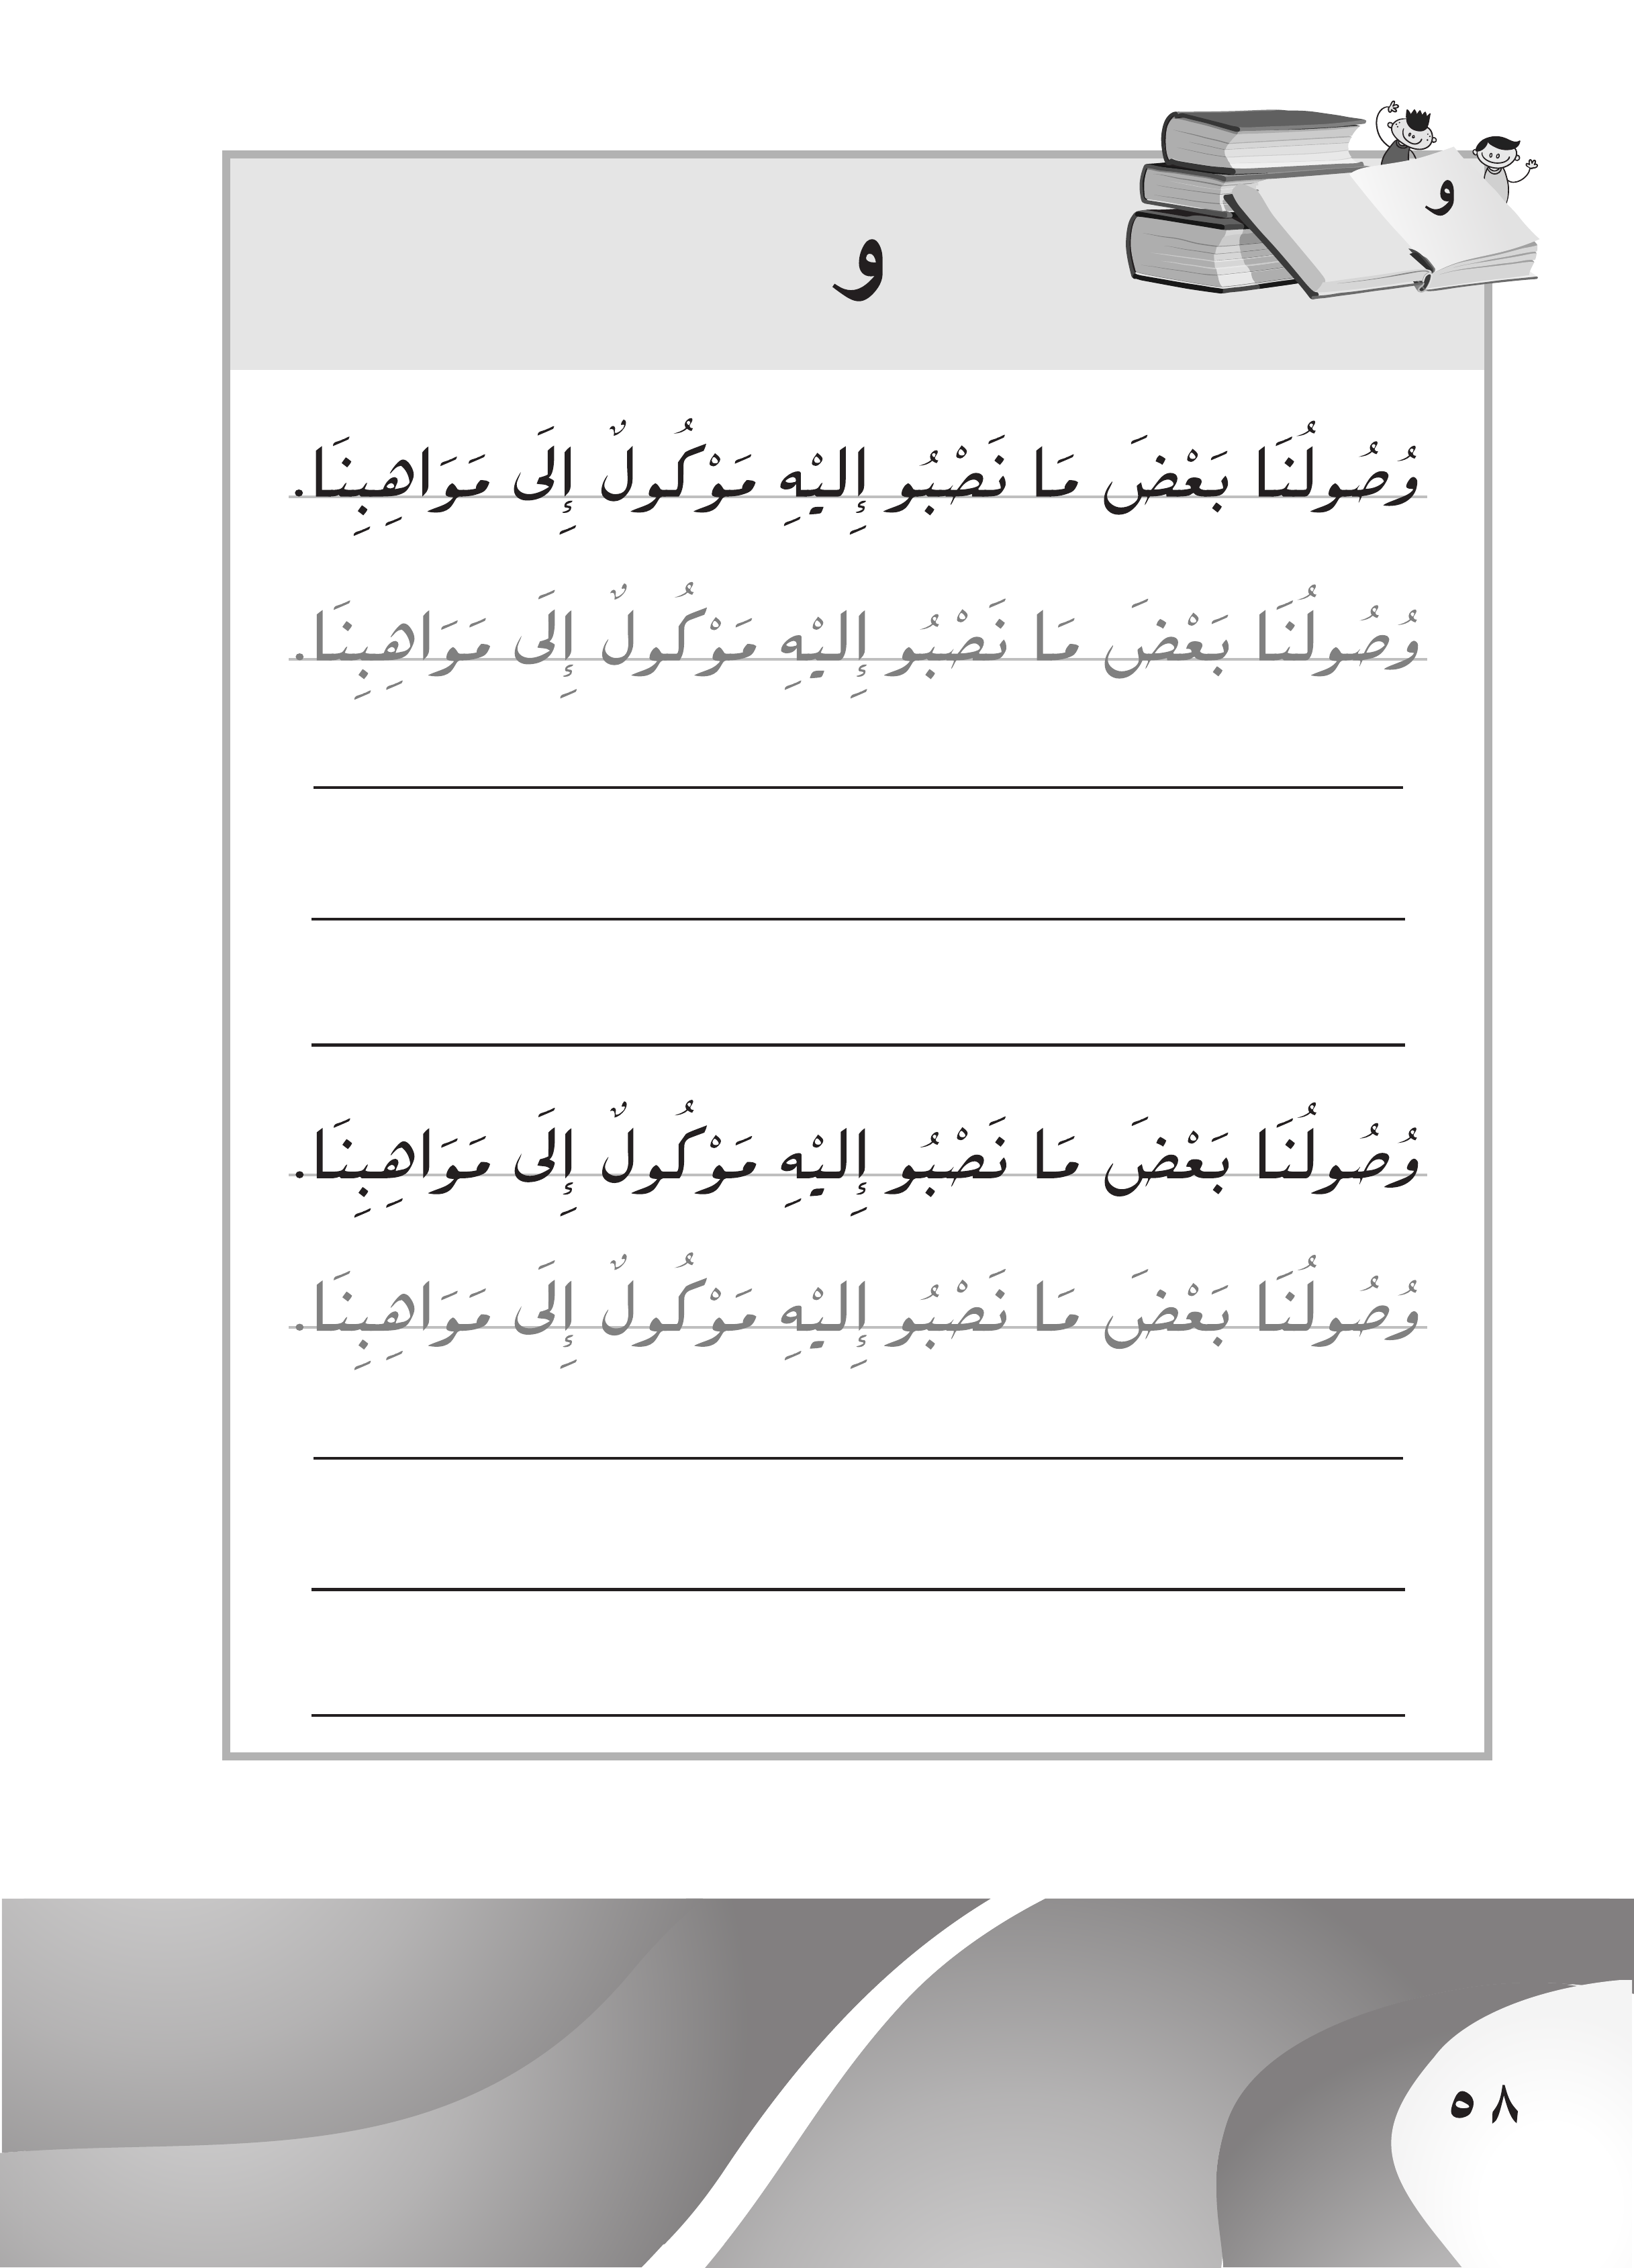 و
و
وُصُولُنَا بَعْضَ مَا نَصْبُو إِليْهِ مَوْكُولٌ إِلَى مَوَاهِبِنَا.
وُصُولُنَا بَعْضَ مَا نَصْبُو إِليْهِ مَوْكُولٌ إِلَى مَوَاهِبِنَا.
وُصُولُنَا بَعْضَ مَا نَصْبُو إِليْهِ مَوْكُولٌ إِلَى مَوَاهِبِنَا.
وُصُولُنَا بَعْضَ مَا نَصْبُو إِليْهِ مَوْكُولٌ إِلَى مَوَاهِبِنَا.
٥٨